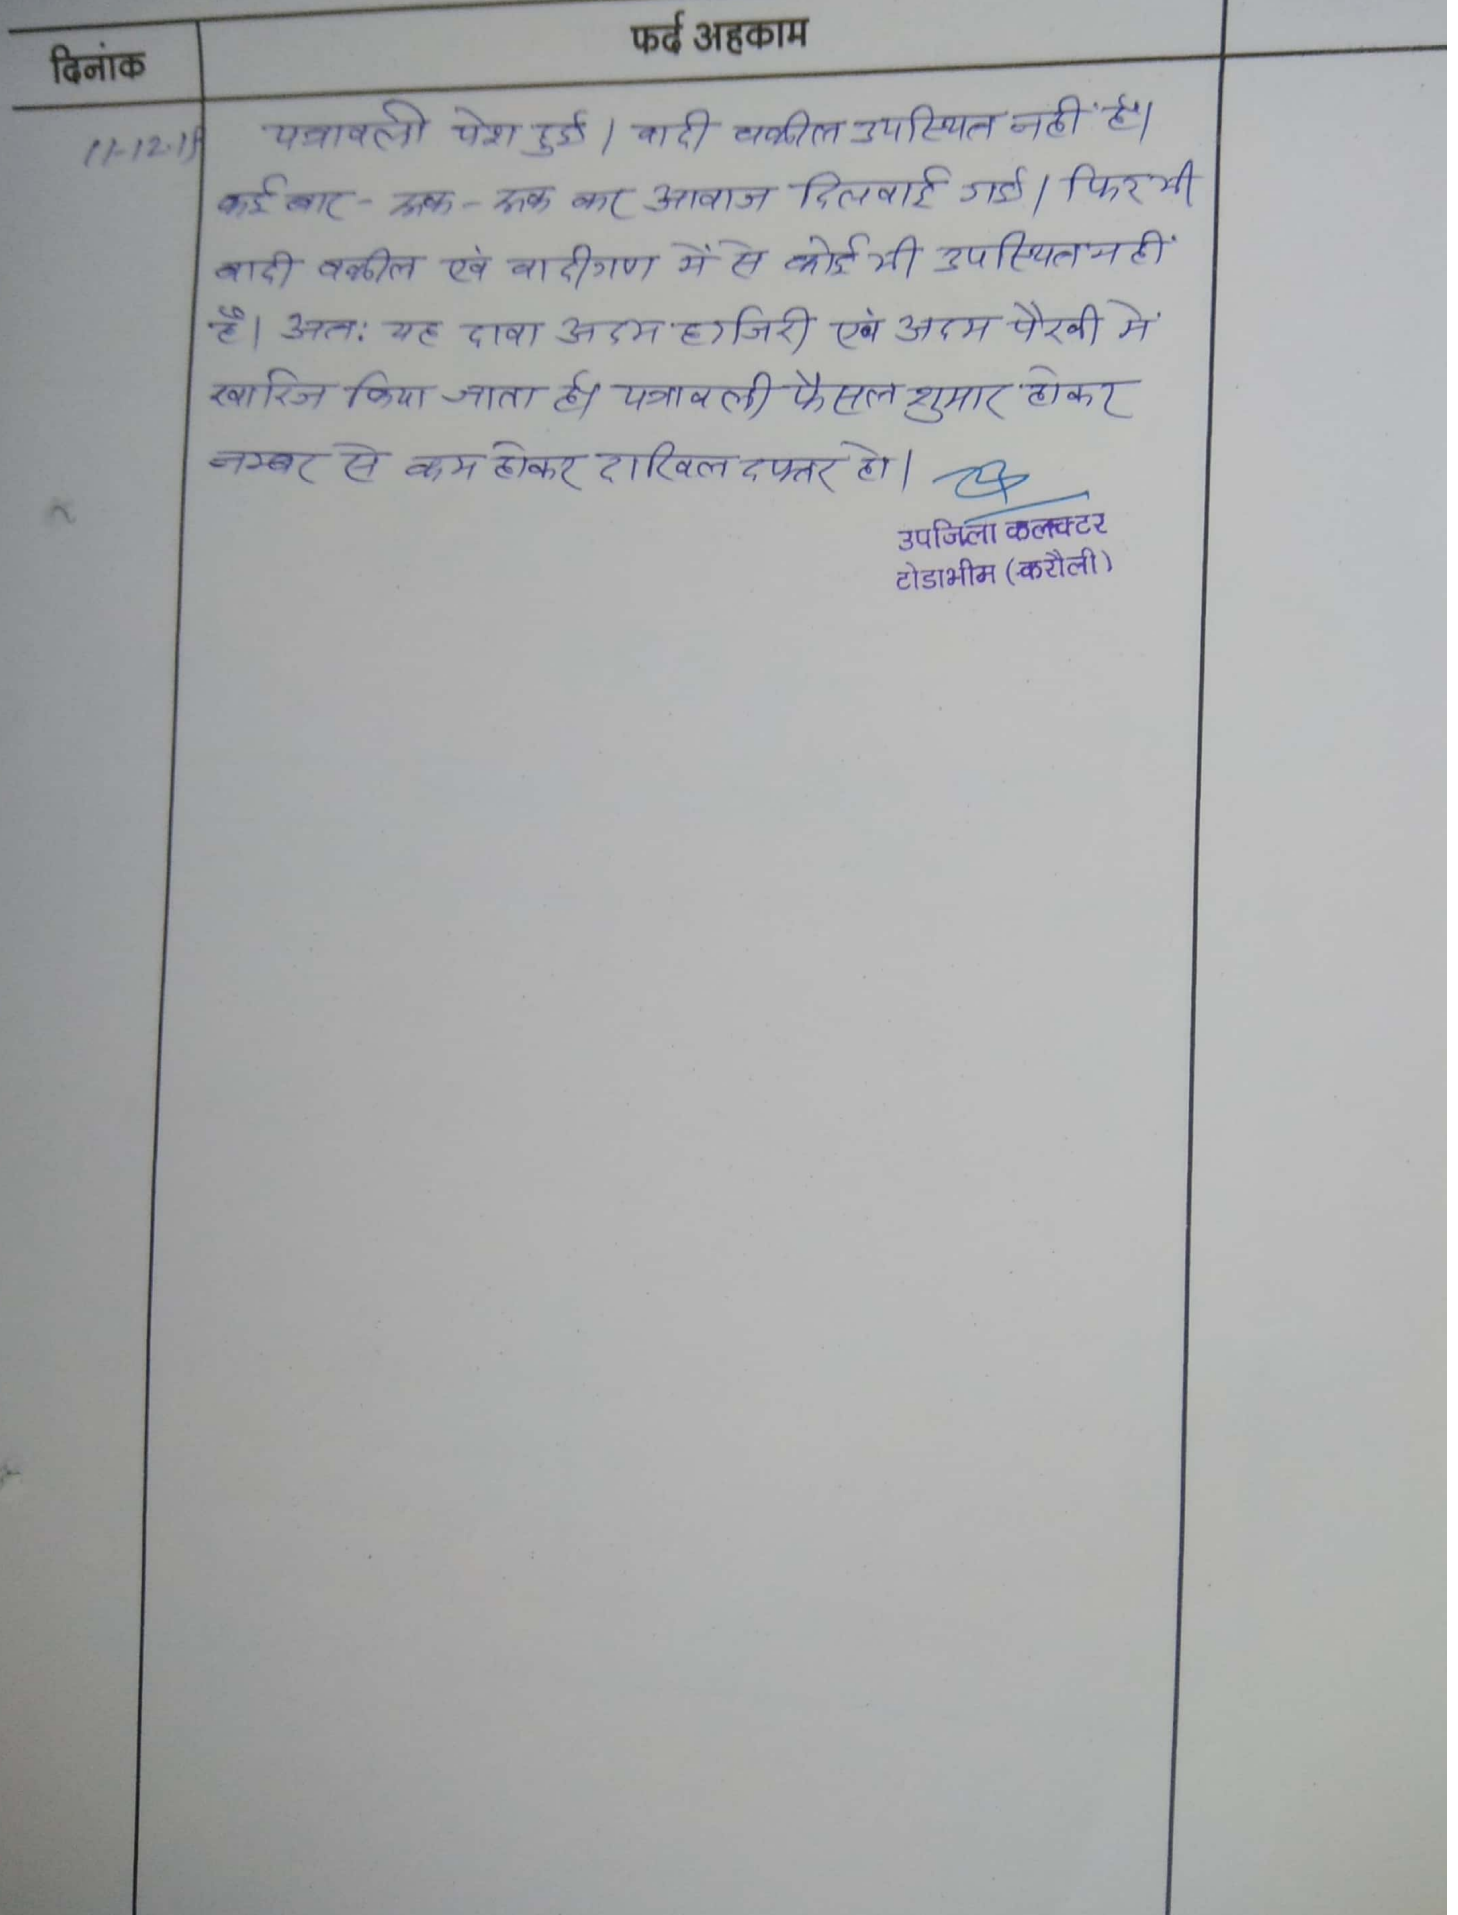 दिनांक
फर्द अहकाम
11-12-19
पत्रावली पेश हुई। वादी वकील उपस्थित नहीं है।
कई बार - रूक - रूक कर आवाज दिलवाई गई। फिर भी
वादी वकील एवं वादीगण में से कोई भी उपस्थित नहीं
है। अतः यह दावा अदम हाजिरी एवं अदम पैरवी में
खारिज किया जाता है। पत्रावली फैसल शुमार होकर
नम्बर से कम होकर दाखिल दफ्तर हो।
उपजिला कलक्टर
टोडाभीम (करौली)